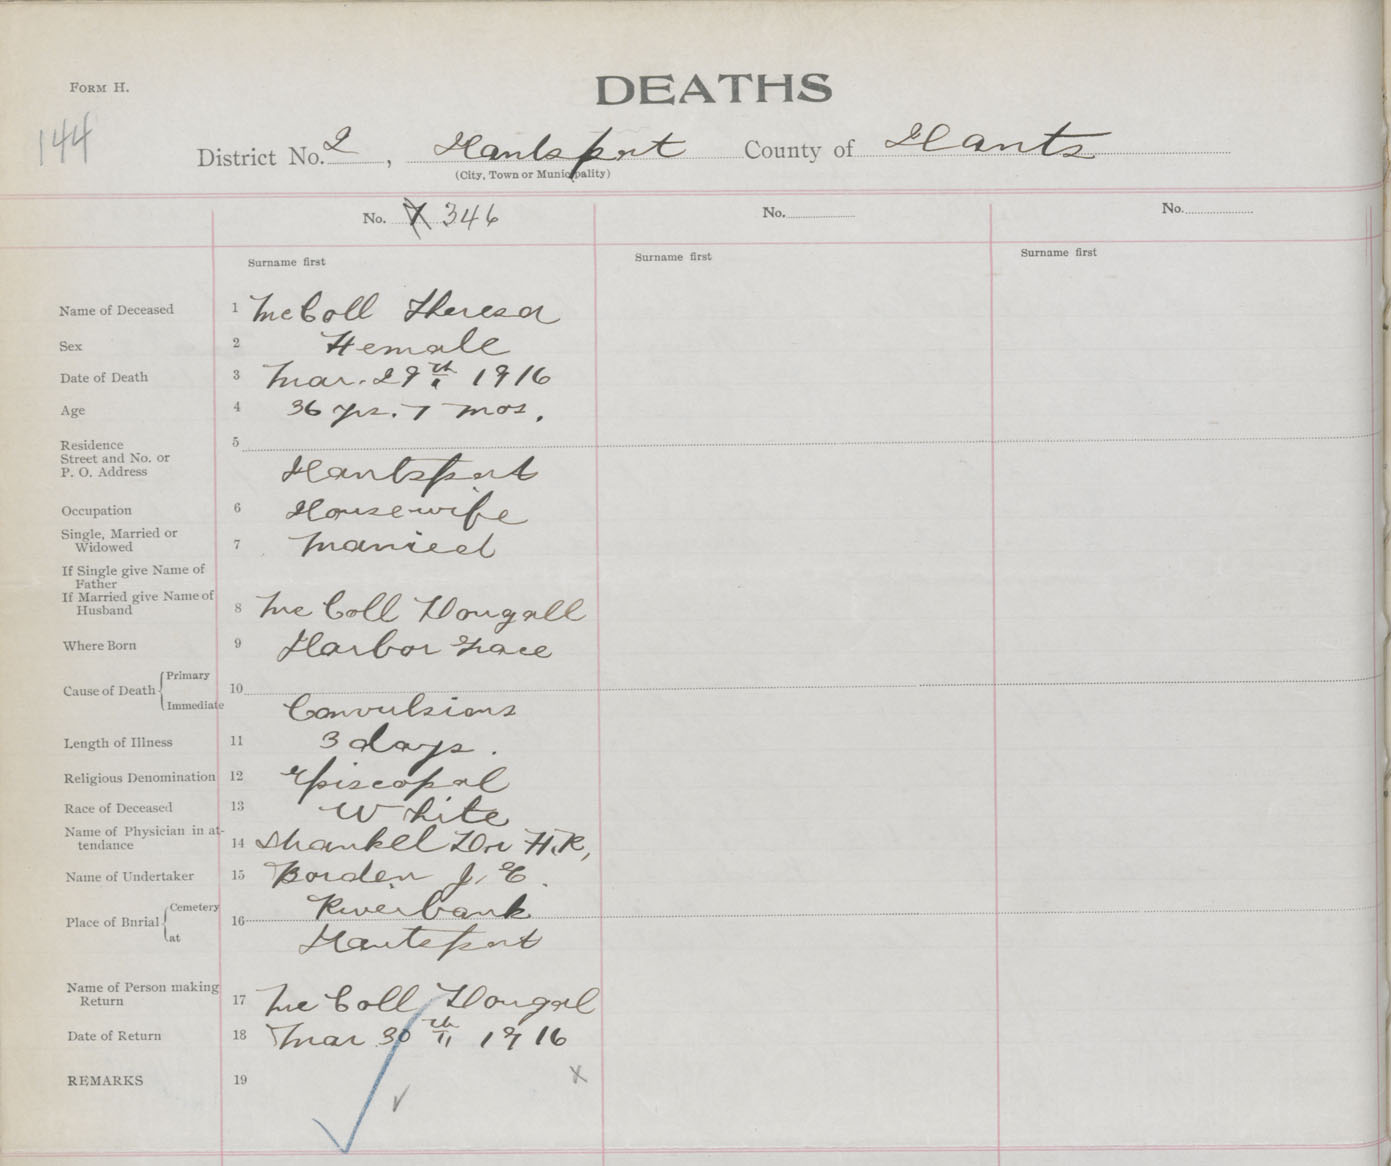 FORM H.
DEATHS
144
District No. 2, Hantsport County of Hants
(City, Town or Municipality)
No. 7 346 No. No.
Surname first Surname first Surname first
Name of Deceased 1 McColl Theresa
Sex 2 Female
Date of Death 3 Mar. 29th 1916
Age 4 36 yrs. 7 mos.
Residence 5
Street and No. or
P. O. Address Hantsport
Occupation 6 Housewife
Single, Married or
Widowed 7 Married
If Single give Name of
Father
If Married give Name of
Husband 8 McColl Dougall
Where Born 9 Harbor Grace
Cause of Death { Primary 10
Immediate Convulsions
Length of Illness 11 3 days.
Religious Denomination 12 Episcopal
Race of Deceased 13 White
Name of Physician in at-
tendance 14 Shankel Dr. F.R.,
Name of Undertaker 15 Borden J. E.
Place of Burial { Cemetery 16 Riverbank
at Hantsport
Name of Person making
Return 17 McColl Dougal
Date of Return 18 Mar 30th 1916
REMARKS 19